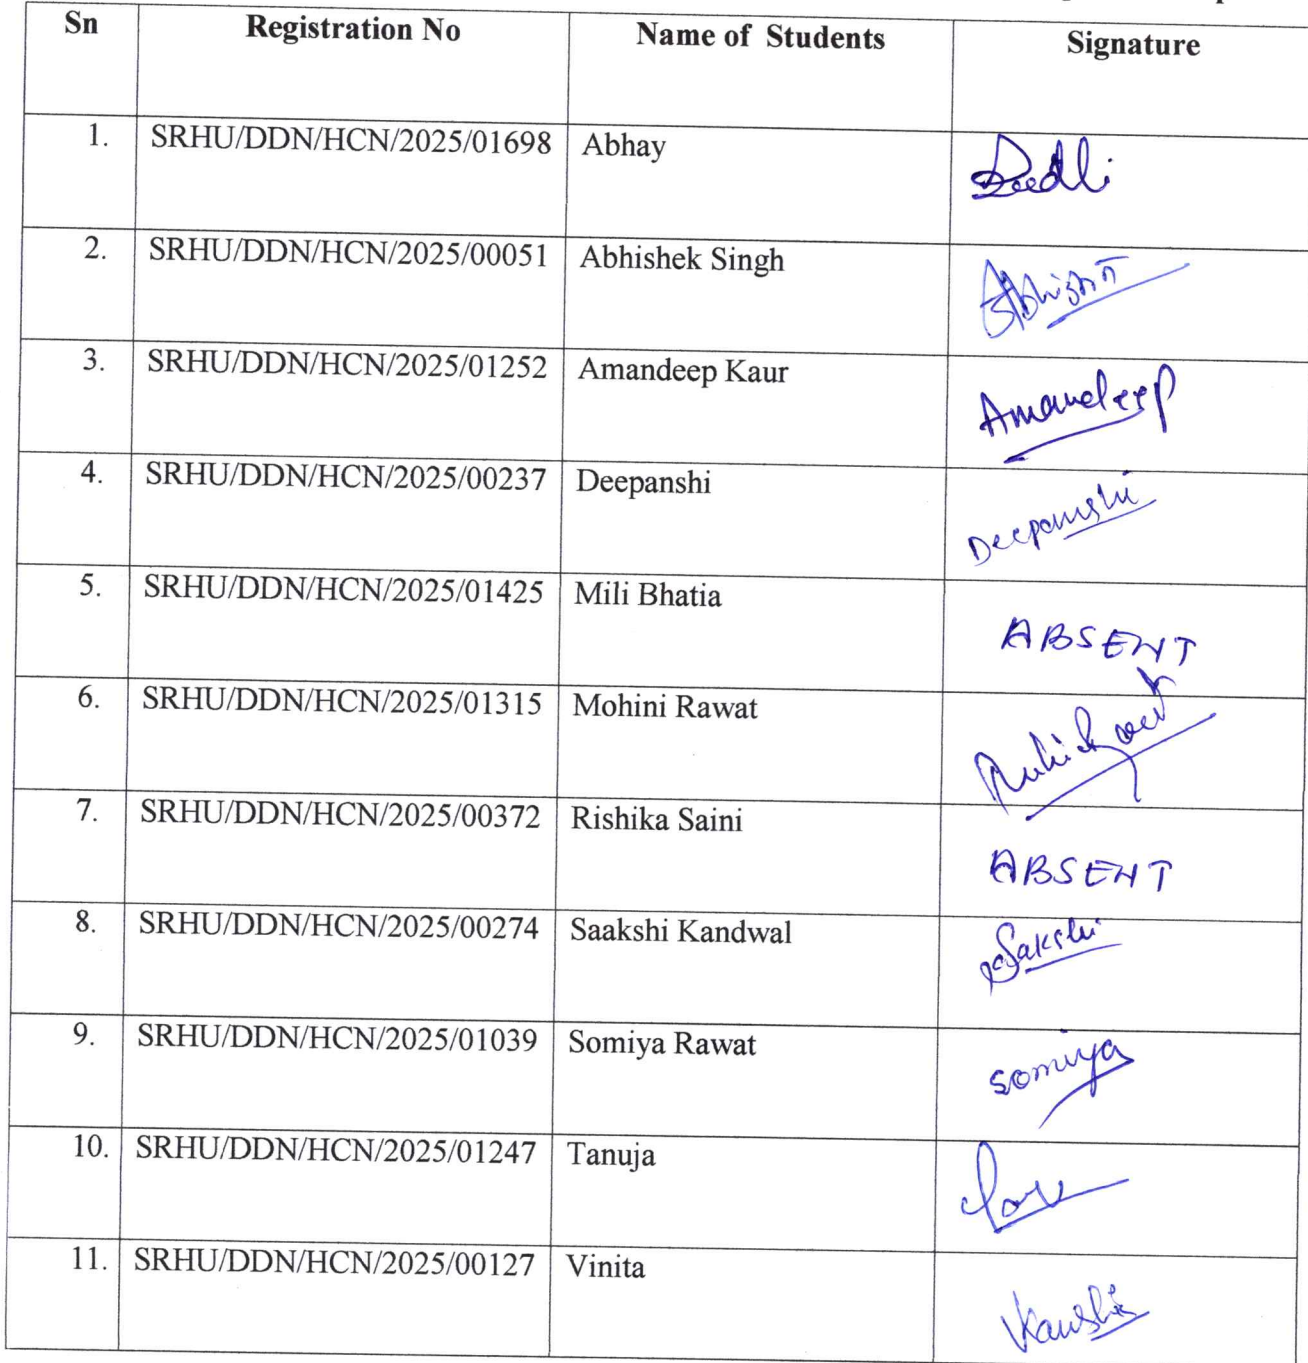 Sn Registration No Name of Students Signature
1. SRHU/DDN/HCN/2025/01698 Abhay
2. SRHU/DDN/HCN/2025/00051 Abhishek Singh
3. SRHU/DDN/HCN/2025/01252 Amandeep Kaur Amandeep
4. SRHU/DDN/HCN/2025/00237 Deepanshi Deepanshi
5. SRHU/DDN/HCN/2025/01425 Mili Bhatia ABSENT
6. SRHU/DDN/HCN/2025/01315 Mohini Rawat
7. SRHU/DDN/HCN/2025/00372 Rishika Saini ABSENT
8. SRHU/DDN/HCN/2025/00274 Saakshi Kandwal Sakshi
9. SRHU/DDN/HCN/2025/01039 Somiya Rawat Somiya
10. SRHU/DDN/HCN/2025/01247 Tanuja
11. SRHU/DDN/HCN/2025/00127 Vinita